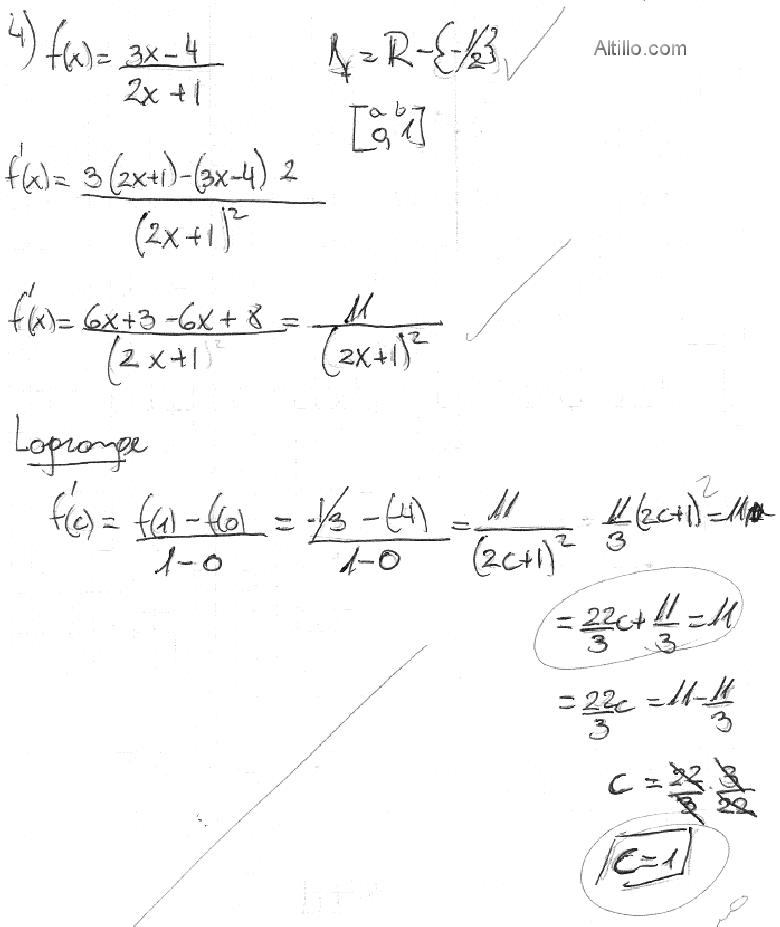 Altillo.com
4) f(x) = (3x-4)/(2x+1)    A_f = R - {-1/2}
[a b]
[0, 1]
f'(x) = (3(2x+1) - (3x-4) 2)/(2x+1)^2
f'(x) = (6x+3-6x+8)/(2x+1)^2 = 11/(2x+1)^2
Lagrange
f'(c) = (f(1) - f(0))/(1-0) = (-1/3 - (-4))/(1-0) = 11/(2c+1)^2    11/3 (2c+1)^2 = 11
= 22/3 c + 11/3 = 11
= 22/3 c = 11 - 11/3
c = 22/3 · 3/22
c = 1